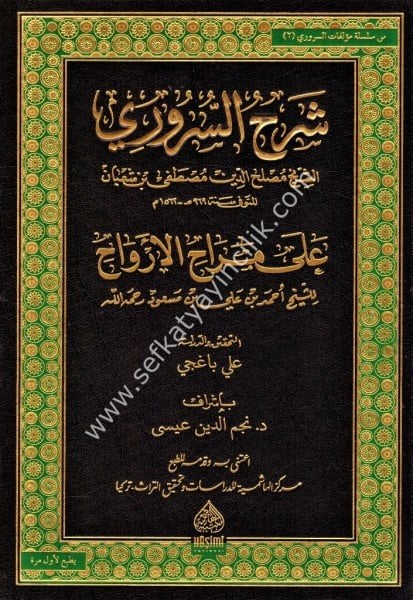 من سلسلة مؤلفات السروري (٢)
شرح السروري
الشيخ مصلح الدين مصطفى بن شعبان
المتوفى سنة ٩٦٩هـ-١٥٦٢م
على مراح الأرواح
للشيخ أحمد بن علي بن مسعود رحمه الله
التحقيق والدراسة
علي باغجي
بإشراف
د. نجم الدين عيسى
اعتنى به وقدمه للطبع
مركز الهاشمية للدراسات وتحقيق التراث. تركيا
HAŞİMİ
YAYINEVİ
يطبع لأول مرة
www.sefkatyayincilik.com